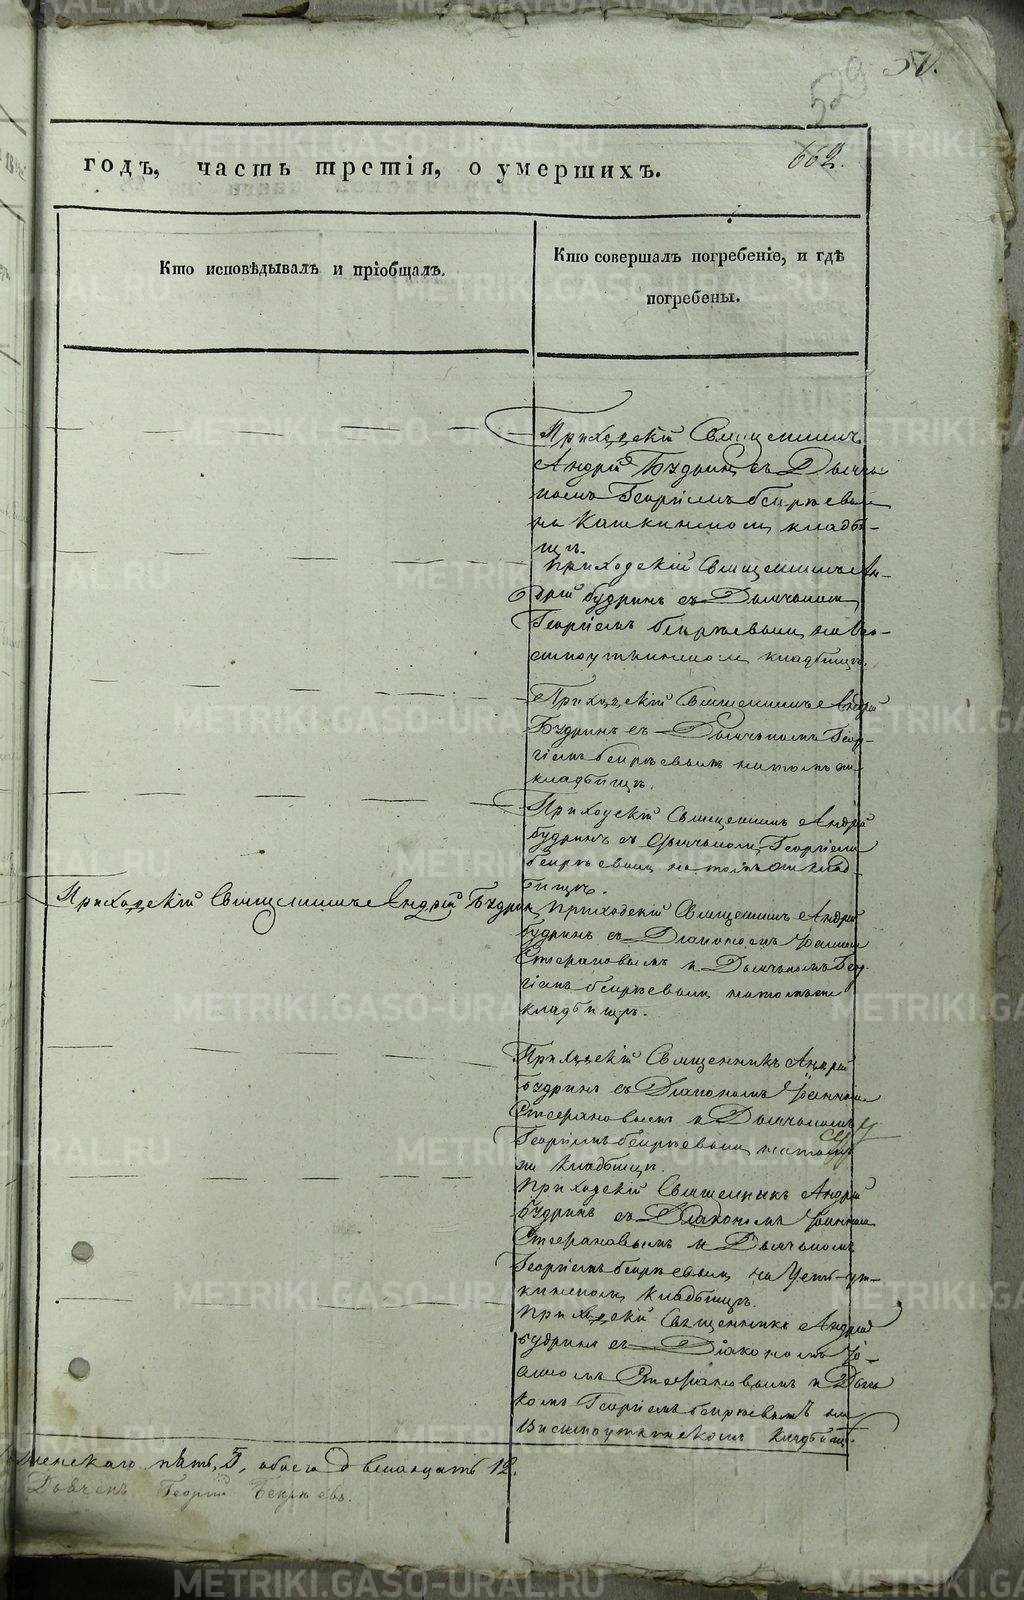 529
57.
годъ, часть третія, о умершихъ.
662.
Кто исповѣдывалъ и пріобщалъ.
Кто совершалъ погребеніе, и гдѣ
погребены.
Приходскій Священникъ
Андрей Будринъ съ Дьячко
номъ Георгіемъ
на Кашкинском кладби-
щѣ.
Приходскій Священникъ Ан-
дрей Будринъ съ Дьячкомъ
Георгіемъ на
кладбищѣ.
Приходскій Священникъ Андрей
Будринъ съ Дьячкомъ Геор-
гіемъ на томъ же
кладбищѣ.
Приходскій Священникъ Андрей
Будринъ съ Дьячкомъ Георгіемъ
на томъ же клад-
бищѣ.
Приходскій Священникъ Андрей Будринъ
Приходскій Священникъ Андрей
Будринъ съ Діакономъ Іоанномъ
Стефановымъ и Дьячкомъ Геор-
гіемъ на томъ же
кладбищѣ.
Приходскій Священникъ Андрей
Будринъ съ Діакономъ Іоанномъ
Стефановымъ и Дьячкомъ
Георгіемъ на томъ
же кладбищѣ.
Приходскій Священникъ Андрей
Будринъ съ Діакономъ Іоанномъ
Стефановымъ и Дьячкомъ
Георгіемъ на Усть-ут-
кинском кладбищѣ.
Приходскій Священникъ Андрей
Будринъ съ Діакономъ Іо-
анномъ Стефановымъ и Дьяч
комъ Георгіемъ на
кладбищѣ.
женскаго пять, 5, обоего двенадцать 12.
Георгій
METRIKI.GASO-URAL.RU